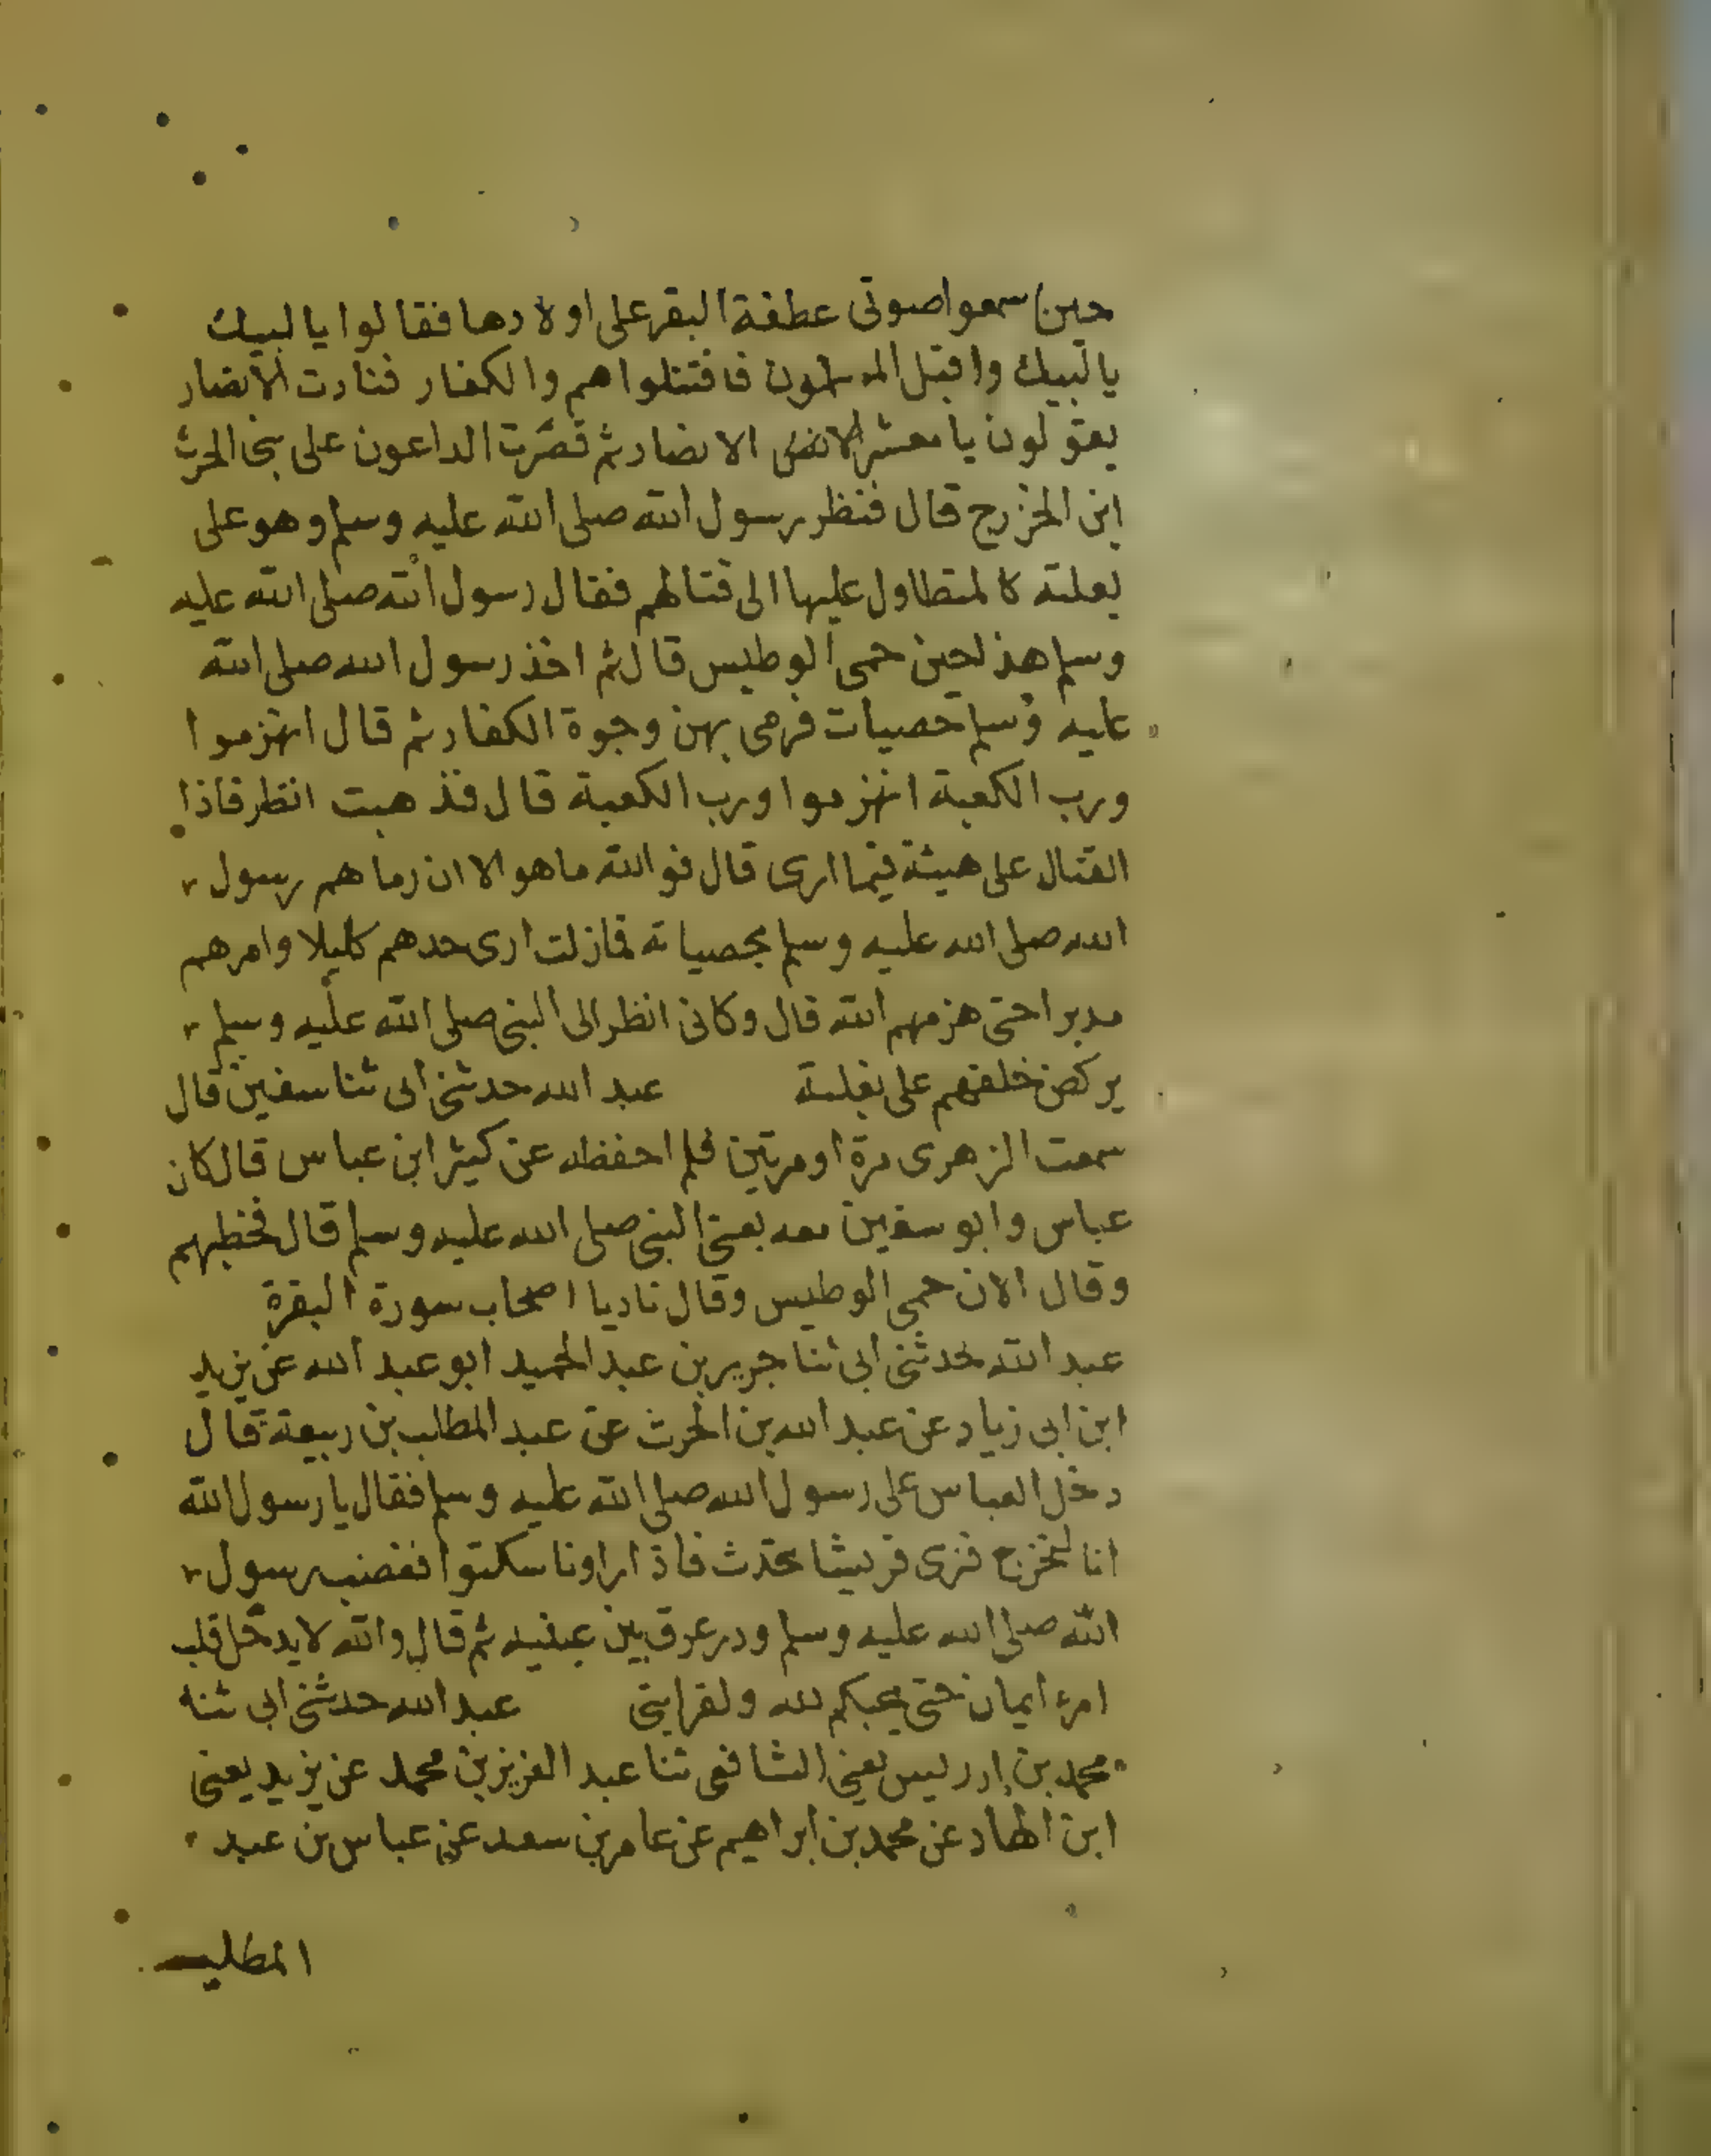 حين سمعوا صوتى عطفة البقر على اولادها فقالوا يا لبيك
يا لبيك واقبل المسلمون فاقتتلوا هم والكفار فنادت الانصار
يقولون يا معشر الانصار ثم قصرت الداعون على بنى الحرث
ابن الخزرج قال فنظر رسول الله صلى الله عليه وسلم وهو على
بغلته كالمتطاول عليها الى قتالهم فقال رسول الله صلى الله عليه
وسلم هذ احين حمى الوطيس قال ثم اخذ رسول الله صلى الله
عليه وسلم حصيات فرمى بهن وجوة الكفار ثم قال انهزموا
ورب الكعبة انهزموا ورب الكعبة قال فذهبت انظر فاذا
القتال على هيئة فيما ارى قال فوالله ما هو الا ان رماهم رسول
الله صلى الله عليه وسلم بحصياته فمازلت ارى حدهم كليلا وامرهم
مدبرا حتى هزمهم الله قال وكانى انظر الى النبى صلى الله عليه وسلم
يركض خلفهم على بغلته عبد الله حدثنى ابى ثنا سفين قال
سمعت الزهرى مرة او مرتين فلم احفظه عن كثير ابن عباس قال كان
عباس وابو سفين معه يعنى النبى صلى الله عليه وسلم قال فخطبهم
وقال الان حمى الوطيس وقال ناد يا اصحاب سورة البقرة
عبد الله حدثنى ابى ثنا جرير بن عبد الحميد ابو عبد الله عن يزيد
ابن ابى زياد عن عبد الله بن الحرث عن عبد المطلب بن ربيعة قال
دخل العباس على رسول الله صلى الله عليه وسلم فقال يا رسول الله
انا لنخرج فنرى قريشا تحدث فاذا راونا سكتوا فغضب رسول
الله صلى الله عليه وسلم ودر عرق بين عينيه ثم قال والله لا يدخل قلب
امرء ايمان حتى يحبكم لله ولقرابتى عبد الله حدثنى ابى ثنا
محمد بن إدريس يعنى الشافعى ثنا عبد العزيز بن محمد عن يزيد يعنى
ابن الهاد عن محمد بن ابراهيم عن عامر بن سعد عن عباس بن عبد
المطلب